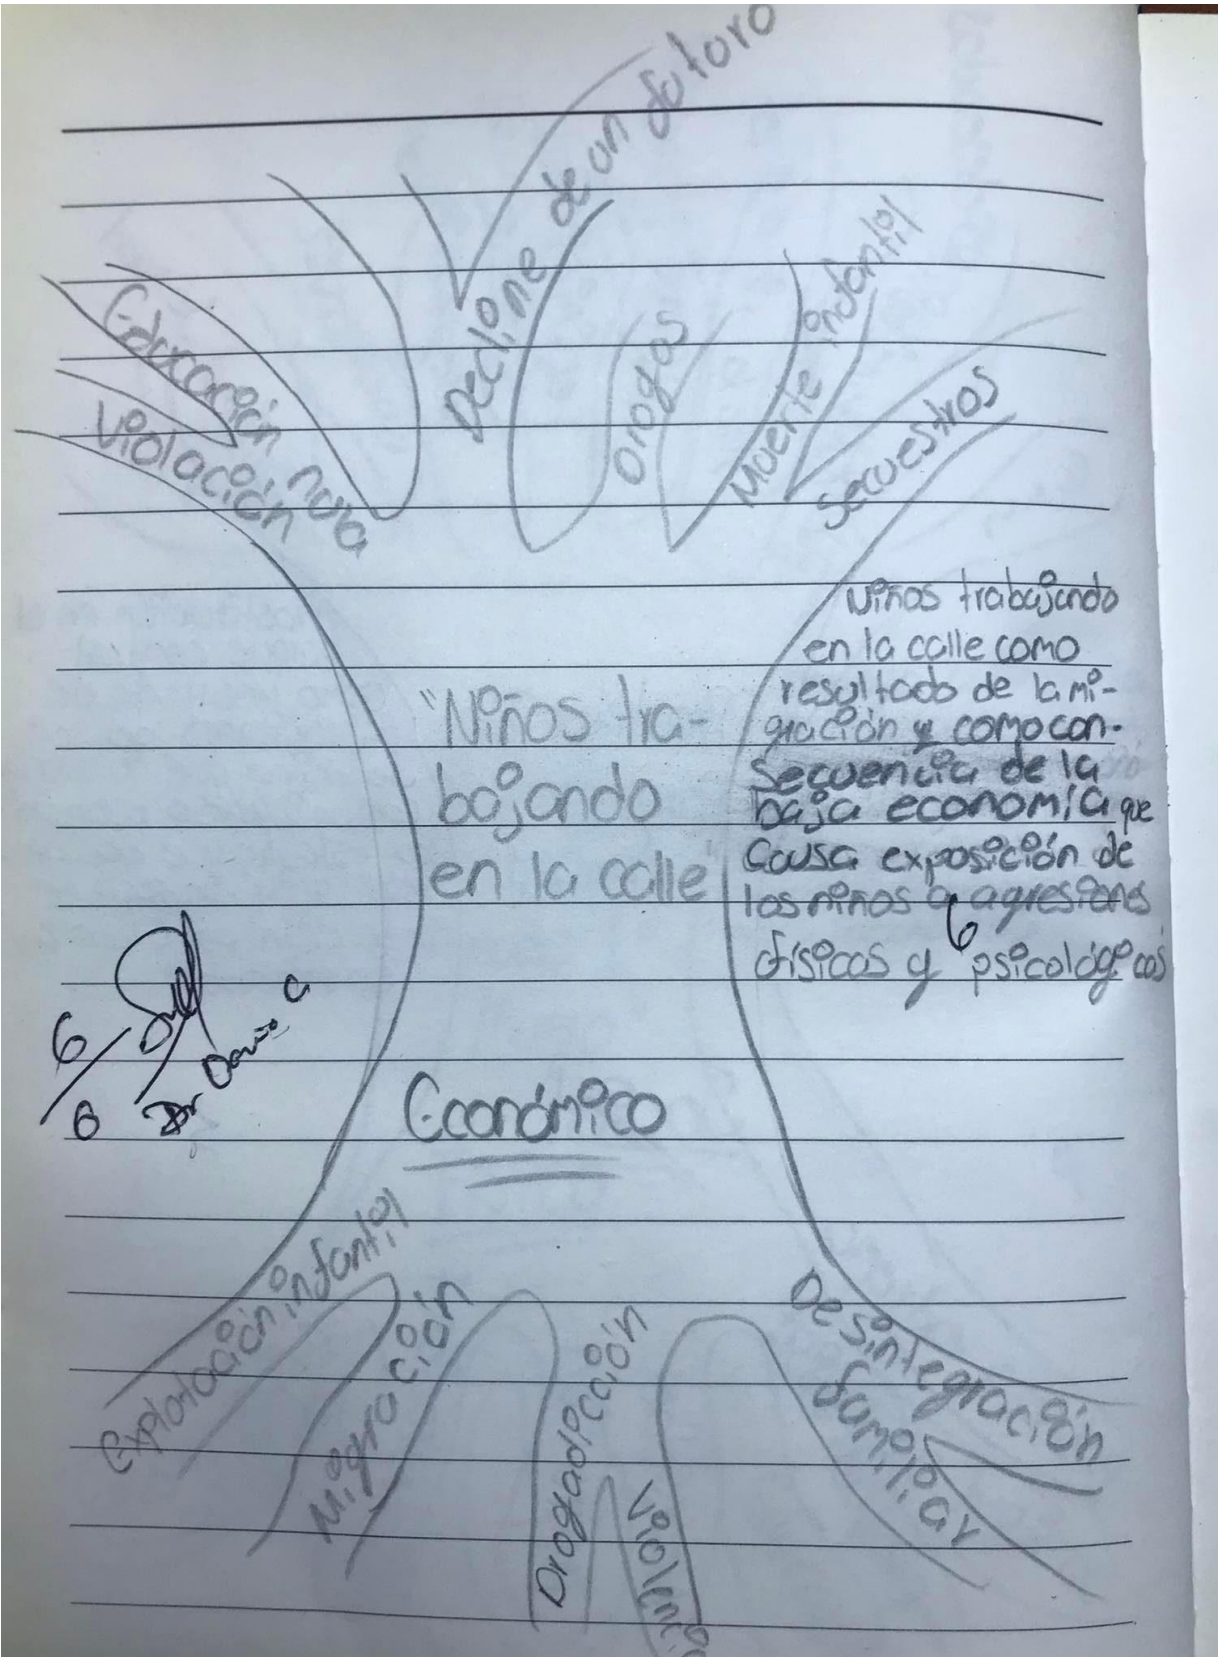 Decline de un futuro
Educación nula
Violación
Drogas
Muerte infantil
Secuestros
Niños trabajando
en la calle como
resultado de la mi-
gración y como con-
secuencia de la
baja economía que
causa exposición de
los niños a agresiones
físicas y psicológicas
6
"Niños tra-
bajando
en la calle"
6/6
Dr
Económico
Explotación infantil
Migración
Drogadicción
Violencia
Desintegración
familiar